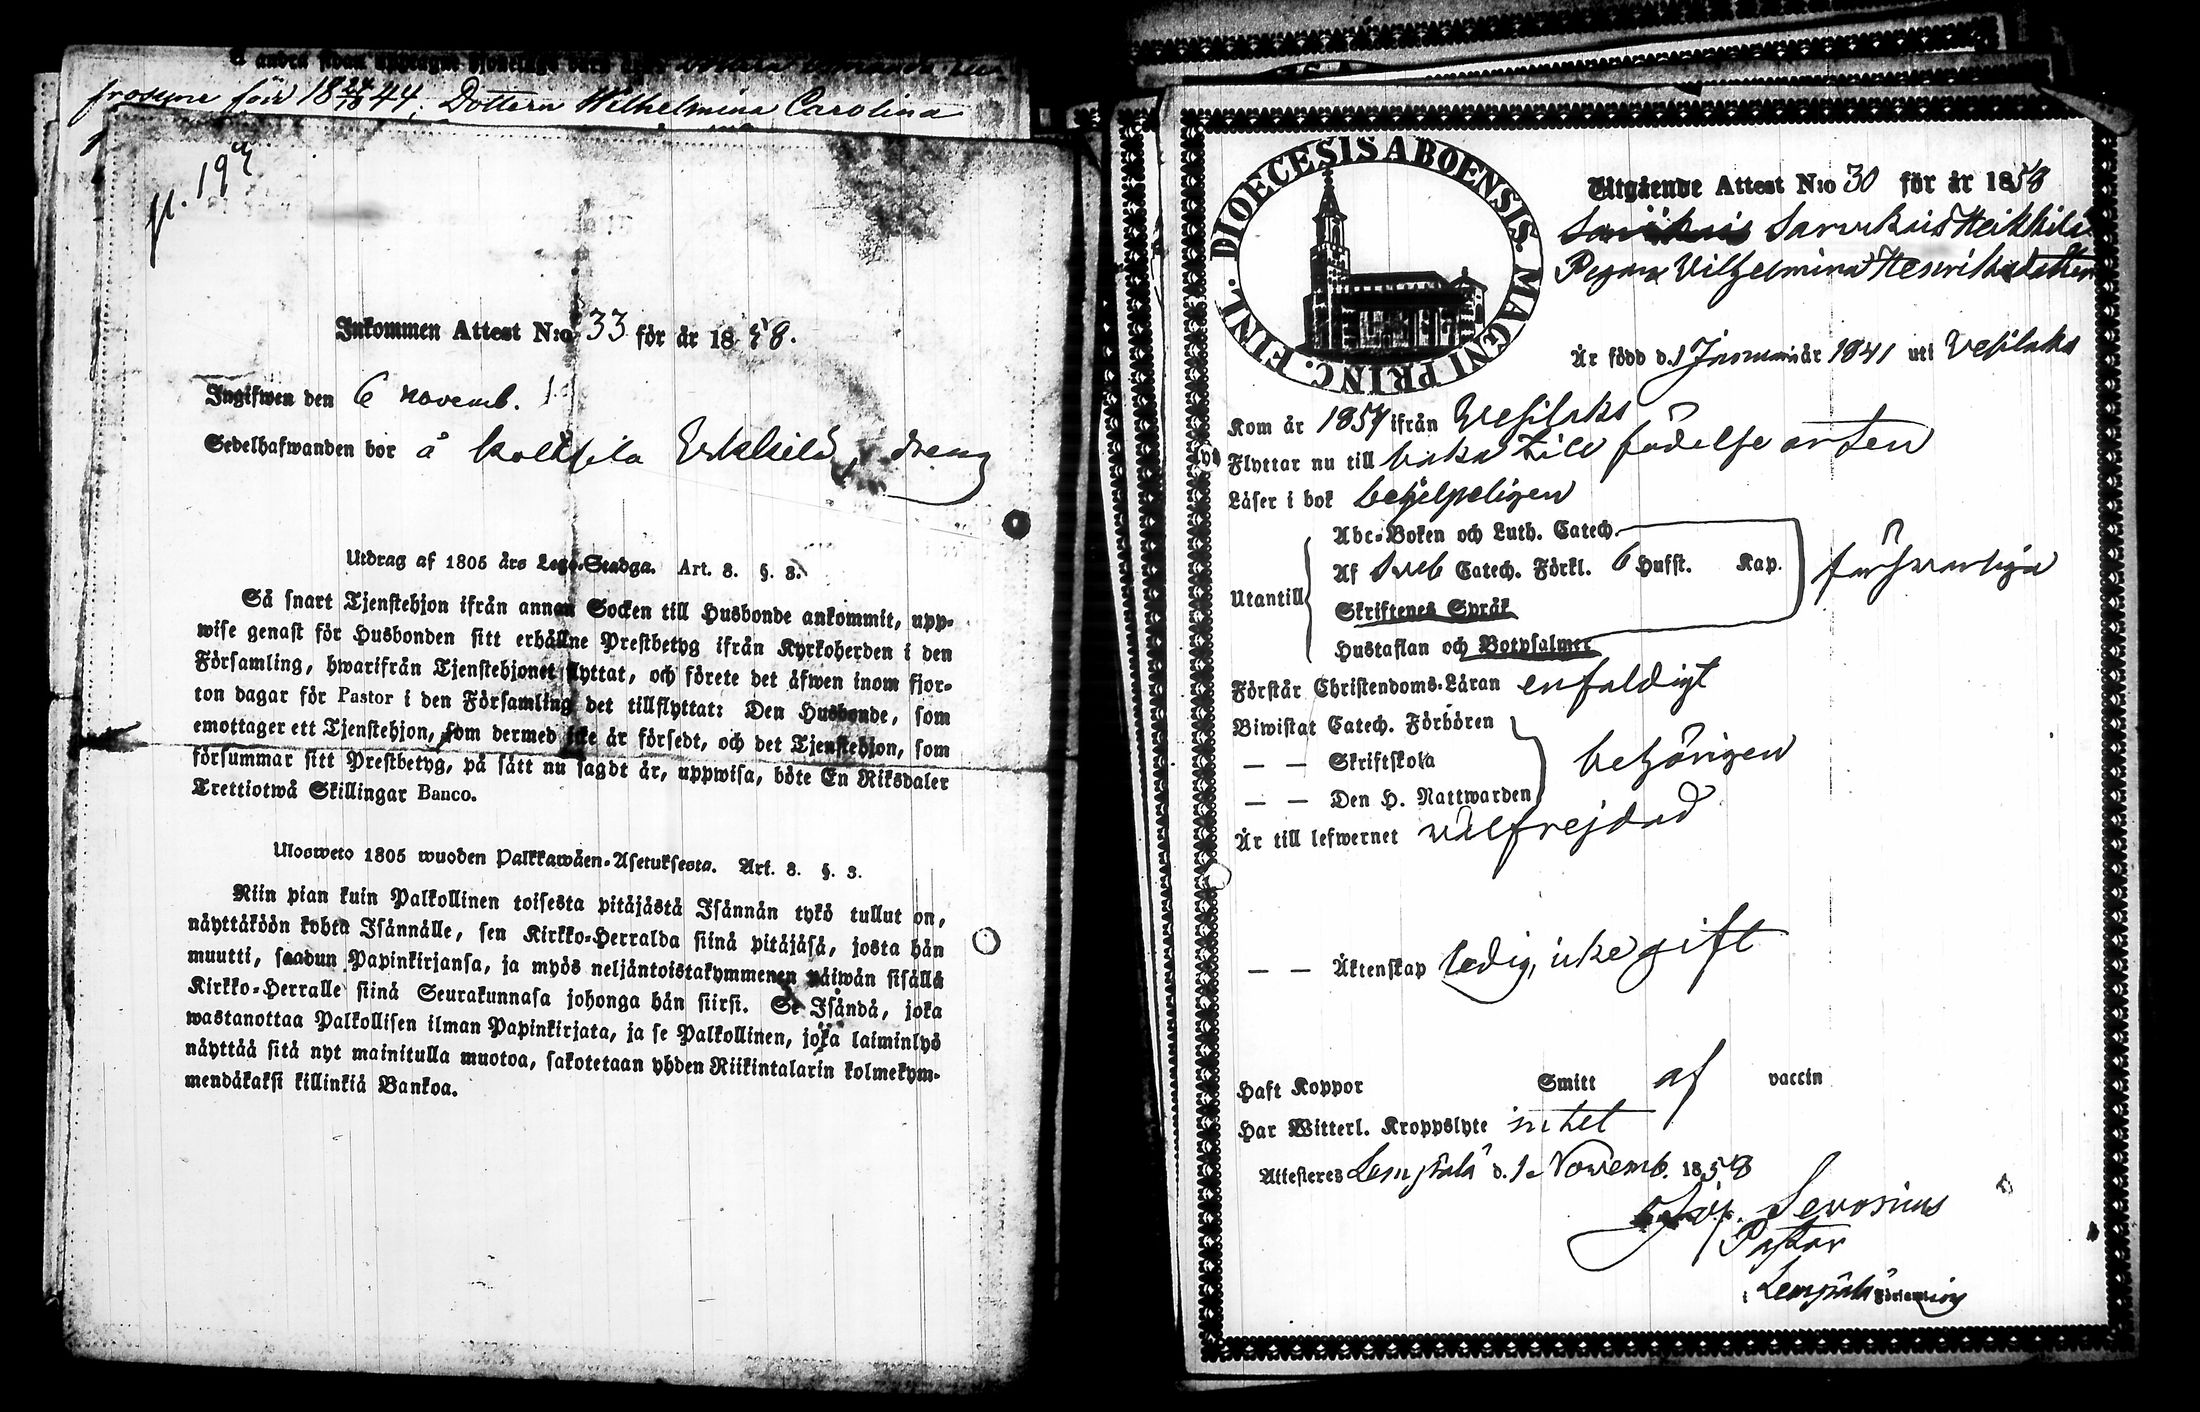 frossyne för 18 24/10 44. Dottern Wilhelmina Carolina
Inkommen Attest N:o 33 för år 1858.
Ingifwen den 6 novemb.
Sedelhafwanden bor å
Utdrag af 1805 års Lego-Stadga. Art. 8. §. 3.
Så snart Tjenstehjon ifrån annan Socken till Husbonde ankommit, upp-
wise genast för Husbonden sitt erhållne Prestbetyg ifrån Kyrkoherden i den
Församling, hwarifrån Tjenstehjonet flyttat, och förete det äfwen inom fjor-
ton dagar för Pastor i den Församling det tillflyttat: Den Husbonde, som
emottager ett Tjenstehjon, som dermed icke är försedt, och det Tjenstehjon, som
försummar sitt Prestbetyg, på sätt nu sagdt är, uppwisa, böte En Riksdaler
Trettiotwå Skillingar Banco.
Ulosweto 1805 wuoden Palkkawäen-Asetuksesta. Art. 8. §. 3.
Niin pian kuin Palkollinen toisesta pitäjästä Isännän tykö tullut on,
näyttäköön kohta Isännälle, sen Kirkko-Herralda siinä pitäjäsä, josta hän
muutti, saadun Papinkirjansa, ja myös neljäntoistakymmenen päiwän sisällä
Kirkko-Herralle siinä Seurakunnasa johonga hän siirsi. Se Isändä, joka
wastanottaa Palkollisen ilman Papinkirjata, ja se Palkollinen, joka laiminlyö
näyttää sitä nyt mainitulla muotoa, sakotetaan yhden Riikintalarin kolmekym-
mendäkaksi killinkiä Bankoa.
DIOECESIS ABOENSIS. MAGNI PRINC. FINL.
Utgående Attest N:o 30 för år 1858
Heikkilä
Pigan Vilhelmina Henriksdotter
Är född d. 1 Januarii år 1841 uti Vesilaks
Kom år 1857 ifrån Vesilaks
Flyttar nu till baka till födelse orten
Läser i bok behjelpeligen
Abc-Boken och Luth. Catech.
Utantill Af Sveb Catech. Förkl. 6 Hufst. Kap. försvarliga
Skriftenes Språk
Hustaflan och Botpsalmer
Förstår Christendoms-Läran enfaldigt
Biwistat Catech. Förhören
— — Skriftskola behörigen
— — Den H. Nattwarden
Är till lefwernet välfrejdad
— — Äktenskap ledig, icke gift
Haft Koppor Smitt af vaccin
Har Witterl. Kroppslyte intet
Attesteres Lempälä d. 1 Novemb. 1858
Pastor
i Lempälä Församling